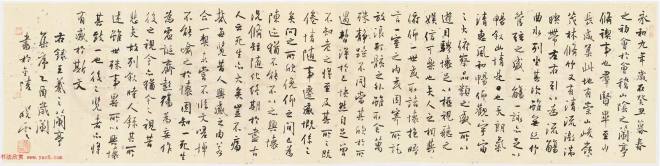 永和九年歲在癸丑暮春
之初會于會稽山陰之蘭亭
脩禊事也群賢畢至少
長咸集此地有崇山峻領
茂林脩竹又有清流激湍
映帶左右引以為流觴
曲水列坐其次雖無絲竹
管弦之盛一觴一詠亦足以
暢敘幽情是日也天朗氣
清惠風和暢仰觀宇宙
之大俯察品類之盛所以
遊目騁懷足以極視聽之
娛信可樂也夫人之相與
俯仰一世或取諸懷抱悟
言一室之內或因寄所託
放浪形骸之外雖趣舍萬
殊靜躁不同當其欣於所
遇暫得於己快然自足
不知老之將至及其所之既
倦情隨事遷感慨係之
矣向之所欣俛仰之間已為
陳迹猶不能不以之興懷
況脩短隨化終期於盡古
人云死生亦大矣豈不痛
哉每覽昔人興感之由若
合一契未嘗不臨文嗟悼
不能喻之於懷固知一死生
為虛誕齊彭殤為妄作
後之視今亦猶今之視昔
悲夫故列敘時人錄其所
述雖世殊事異所以興懷
其致一也後之覽者亦將
有感於斯文
右錄王羲之蘭亭
集序 乙酉歲闌
書於金陵
书法欣赏 www.yac8.com